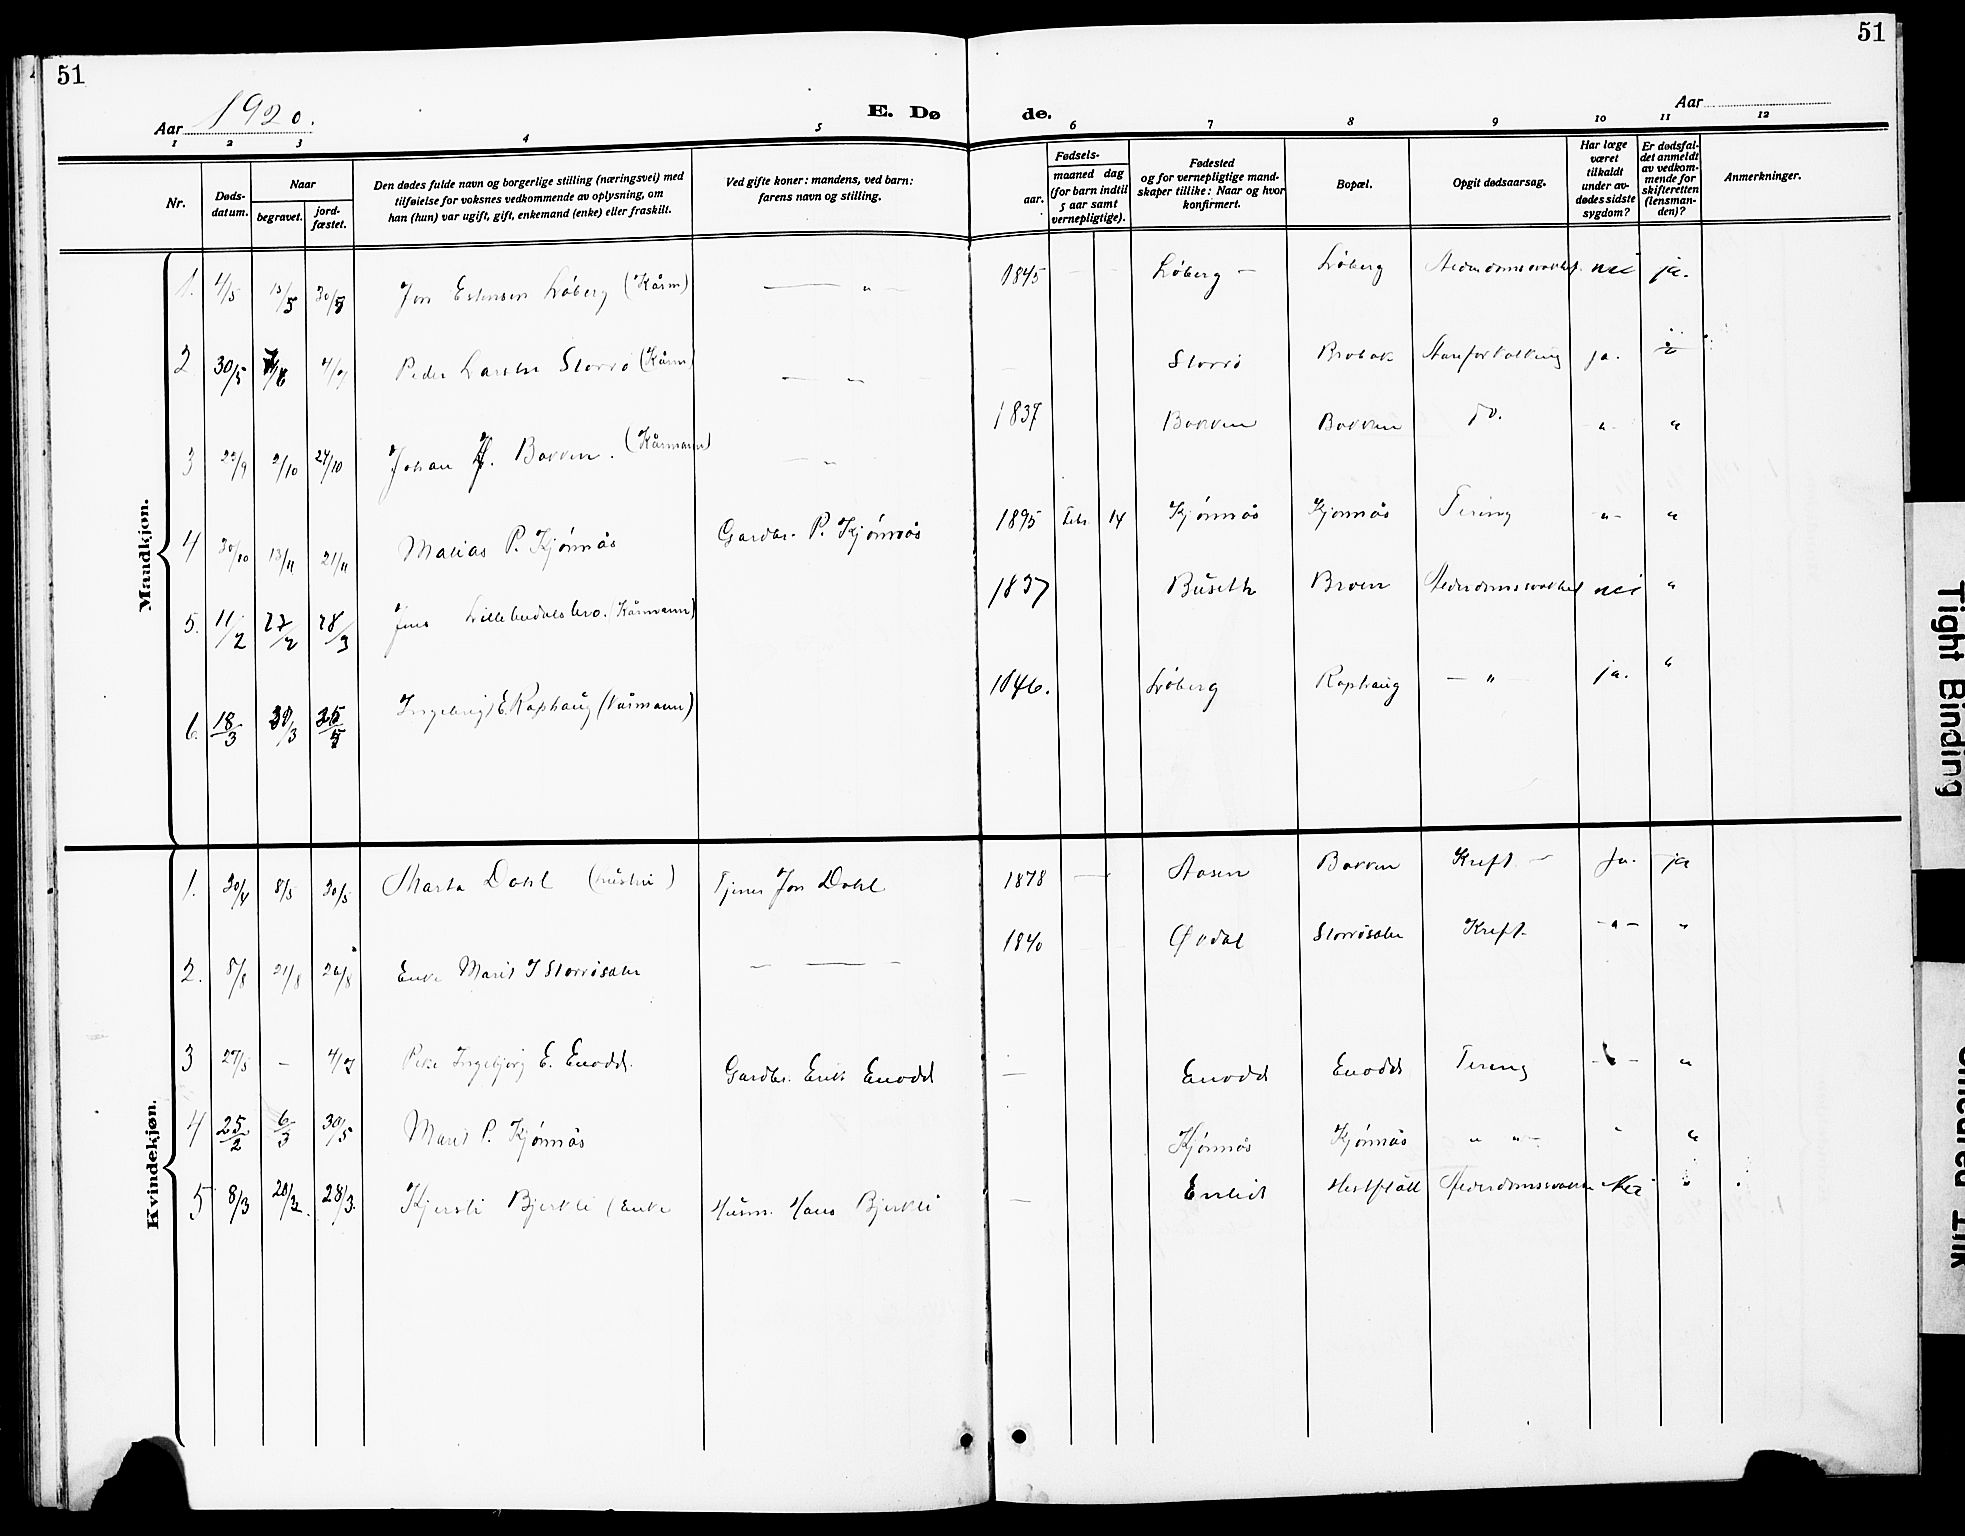 51
51
Aar 1920.
E. Dø
de.
Aar
1 2 3 4 5 6 7 8 9 10 11 12
Nr.
Døds-
datum.
Naar
begravet.
jord-
fæstet.
Den dødes fulde navn og borgerlige stilling (næringsvei) med
tilføielse for voksnes vedkommende av oplysning, om
han (hun) var ugift, gift, enkemand (enke) eller fraskilt.
Ved gifte koner: mandens, ved barn:
farens navn og stilling.
Fødsels-
aar.
maaned dag
(for barn indtil
5 aar samt
vernepligtige).
Fødested
og for vernepligtige mand-
skaper tillike: Naar og hvor
konfirmert.
Bopæl.
Opgit dødsaarsag.
Har læge
været
tilkaldt
under av-
dødes sidste
sygdom?
Er dødsfal-
det anmeldt
av vedkom-
mende for
skifteretten
(lensman-
den)?
Anmerkninger.
Mandkjøn.
1. 4/5 13/5 30/5 Jon Estensen Løberg (Kårm) — " — 1845 — — Løberg — Løberg Alderdomssvakhet nei ja.
2 30/5 4/7 Peder Larsen Storrø (Kårm) — " — — Storrø Brobak ja.
3 23/9 2/10 24/10 Johan Bovven. (Kårmann) — " — 1837 Bovven Bovven Do. " "
4 30/10 13/11 21/11 Malias P. Kjønnås Gardbr. P. Kjønnås 1895 Febr 14 Kjønnås Kjønnås Tæring " "
5. 11/2 27/2 28/3 Jens Lillebudalsbro. (Kårmann) 1837 Buseth Broen Alderdomssvakhet nei "
6. 18/3 3 Ingebrigt E. Raphaug (Kårmann) 1846. Løberg Raphaug — " — ja. "
Kvindekjøn.
1. 30/4 8/5 30/5 Marta Dahl (hustru) Tjener Jon Dahl 1878 — Aasen Bovven Kreft — Ja. ja
2. 8/8 21/8 26/8 Enke Marit J Storrøsæter — — — 1840 Øvdal Storrøsæter Kreft. — " — "
3 27/5 — 4/7 Pike Ingebjørg E. Enodd. Gardbr. Erik Enodd — Enodd Enodd Tæring "
4 25/2 6/3 30/5 Marit P. Kjønnås Kjønnås Kjønnås " " " "
5 8/3 20/3. 28/3. Kjersti Bjerkli (Enke Husm. Hans Bjerkli — Enlid Alderdomssvakhet Nei "
Tight Binding